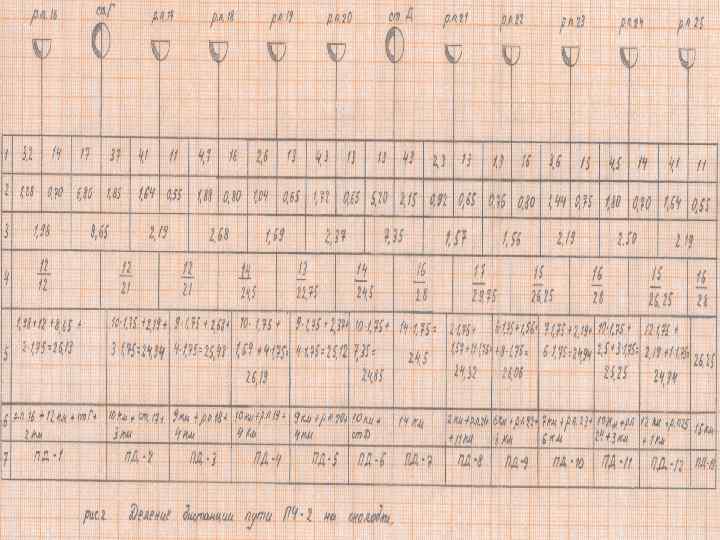 рп.16 ст.Г рп.17 рп.18 рп.19 рп.20 ст.Д рп.21 рп.22 рп.23 рп.24 рп.25
1 3,2 14 17 37 4,1 11 4,7 16 2,6 13 4,3 13 13 43 2,3 13 1,9 16 3,6 15 4,5 14 4,1 11
2 1,28 0,70 6,80 1,85 1,64 0,55 1,88 0,80 1,04 0,65 1,72 0,65 5,20 2,15 0,92 0,65 0,76 0,80 1,44 0,75 1,80 0,70 1,64 0,55
3 1,98 8,65 2,19 2,68 1,69 2,37 7,35 1,57 1,56 2,19 2,50 2,19
12 12 12 14 13 14 16 17 15 16 15 16
4
12 21 21 24,5 22,75 24,5 28 29,75 26,25 28 26,25 28
1,98+12+8,65+ 10·1,75+2,19+ 9·1,75+2,68+ 10·1,75+ 9·1,75+2,37+ 10·1,75+ 14·1,75= 2·1,75+ 6·1,75+1,56+ 7·1,75+2,19+ 10·1,75+ 12·1,75+
5 2·1,75=26,13 3·1,75=24,94 4·1,75=25,43 1,69+4·1,75= 4·1,75=25,12 7,35= 24,5 1,57+11·1,75= +8·1,75= 6·1,75=24,94 2,5+3·1,75= 2,19+1·1,75= 26,25
26,19 24,85 24,32 26,06 25,25 24,94
6 рп.16+12км+ст.Г+ 10км+рп.17+ 9км+рп.18+ 10км+рп.19+ 9км+рп.20+ 10км+ 14км 2км+рп.21 6км+рп.22+ 7км+рп.23+ 10км+рп. 12км+рп25 15км
2км 3км 4км 4км 4км ст.Д +11км 6км 24+3км +1км
7 ПД-1 ПД-2 ПД-3 ПД-4 ПД-5 ПД-6 ПД-7 ПД-8 ПД-9 ПД-10 ПД-11 ПД-12 ПД-13
рис.2 Деление дистанции пути ПЧ-2 на околодки.